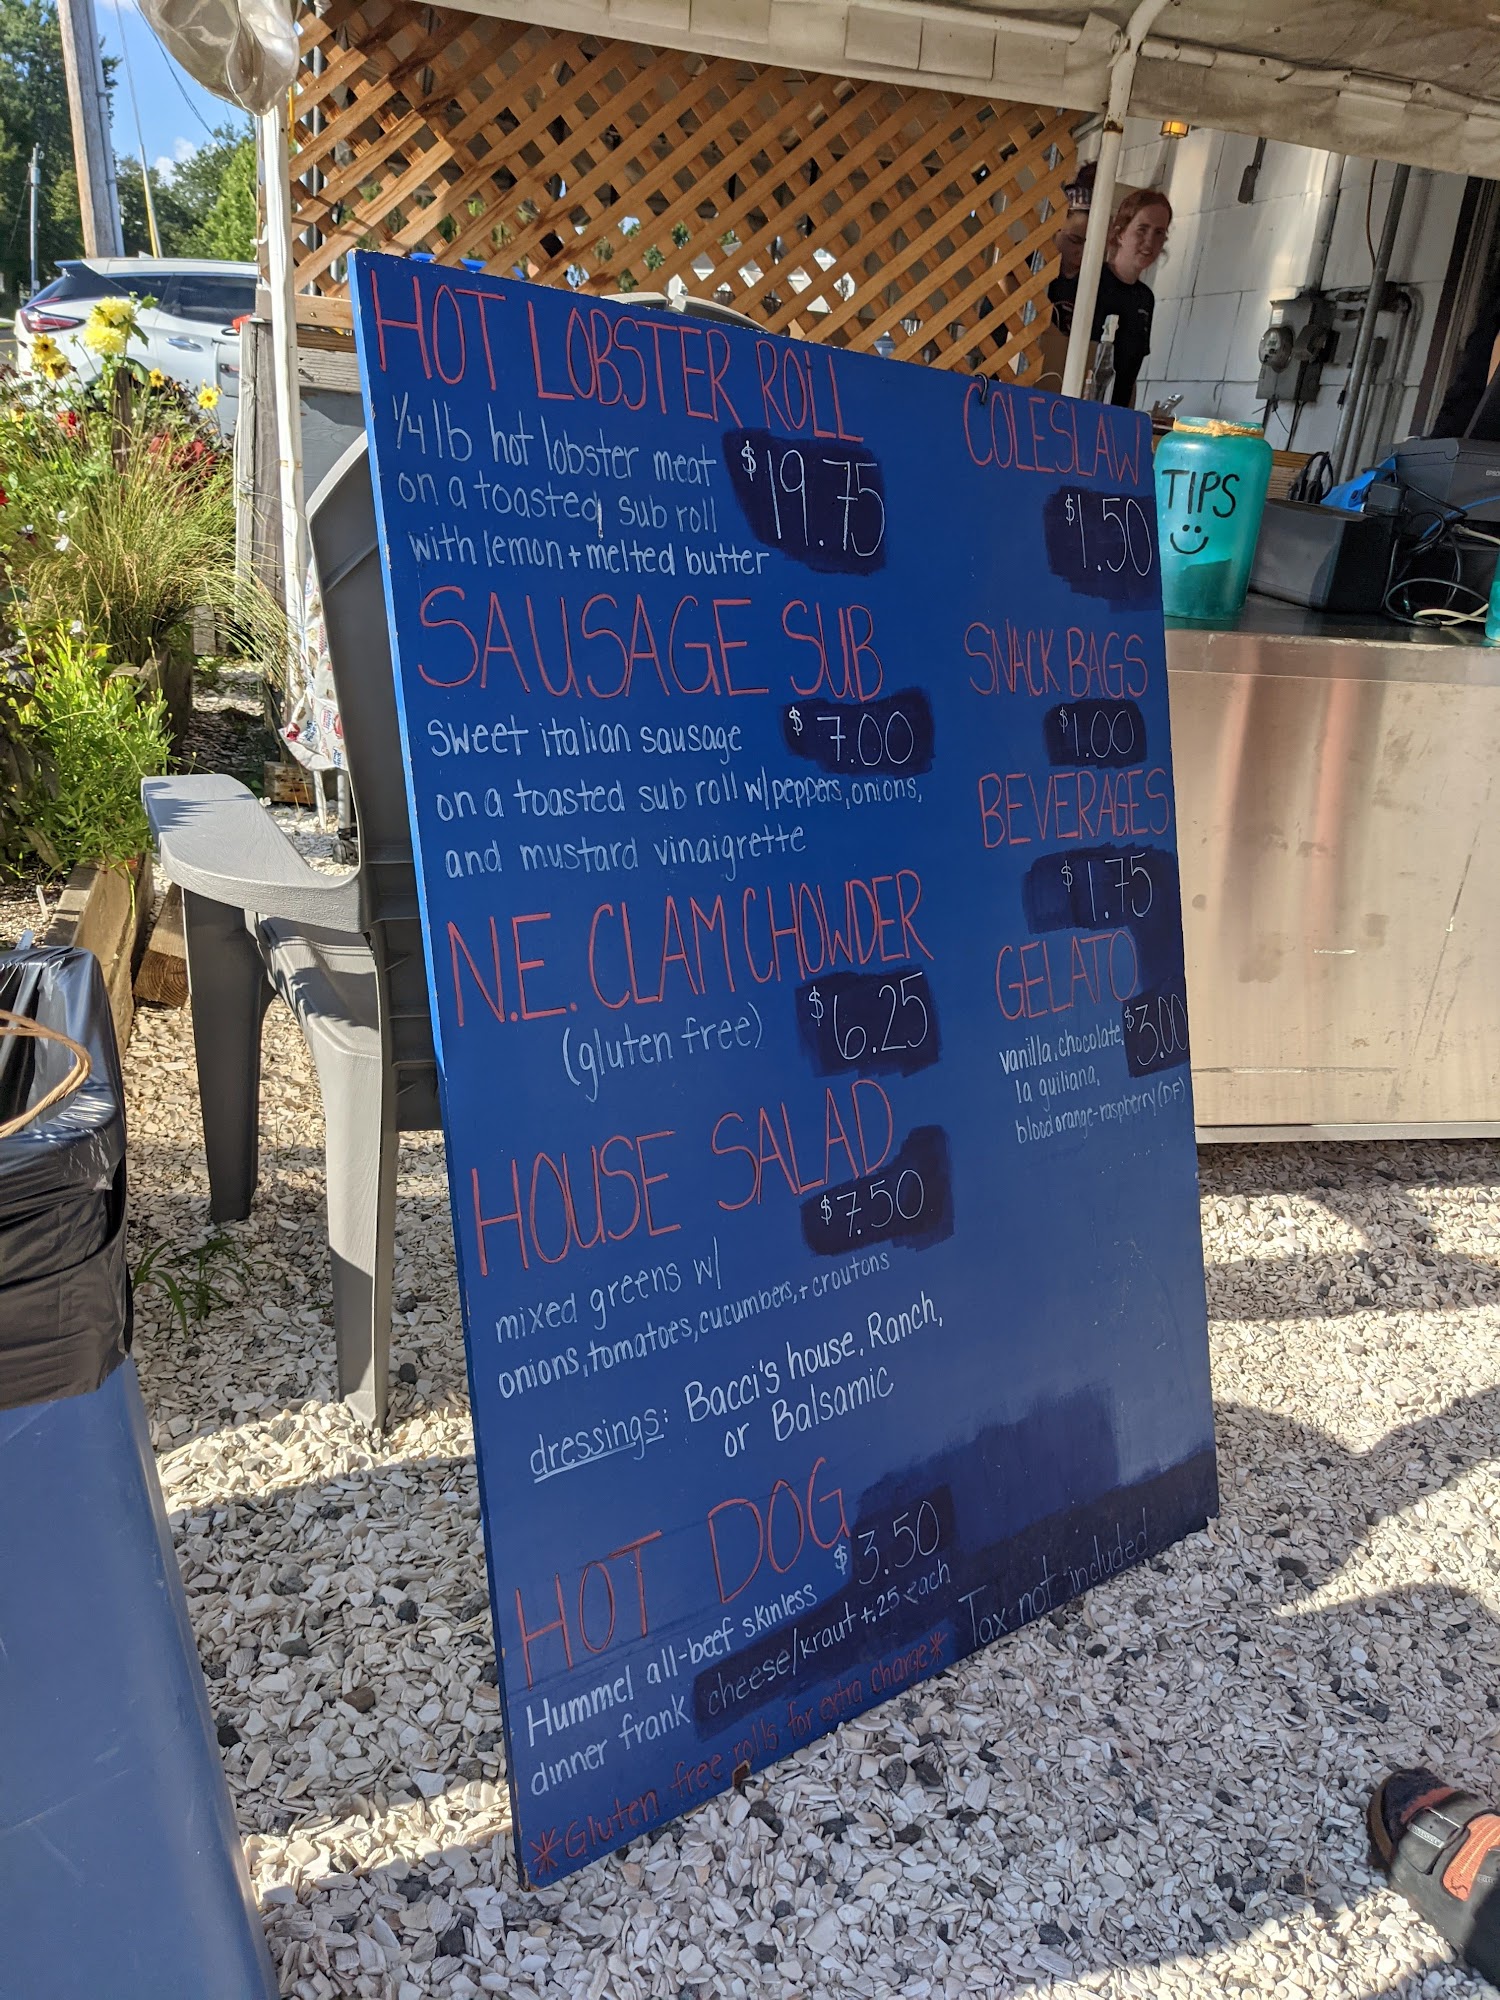 HOT LOBSTER ROLL
1/4 lb hot lobster meat
on a toasted sub roll
with lemon + melted butter
$19.75
SAUSAGE SUB
$7.00
sweet italian sausage
on a toasted sub roll w/peppers, onions,
and mustard vinaigrette
N.E. CLAM CHOWDER
(gluten free)
$6.25
HOUSE SALAD
$7.50
mixed greens w/
onions, tomatoes, cucumbers, + croutons
dressings: Bacci's house, Ranch,
or Balsamic
HOT DOG
$3.50
Hummel all-beef skinless
dinner frank cheese/kraut +.25 each
*Gluten free rolls for extra charge*
Tax not included
COLESLAW
$1.50
SNACK BAGS
$1.00
BEVERAGES
$1.75
GELATO
$3.00
vanilla, chocolate,
la guiliana,
blood orange-raspberry (DF)
TIPS